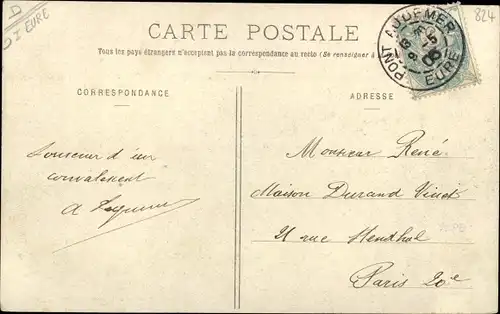 D
D EURE
824
CARTE POSTALE
Tous les pays étrangers n'acceptent pas la correspondance au recto (Se renseigner à
PONT AUDEMER
EURE
CORRESPONDANCE
ADRESSE
Souvenir d'un
convalescent
A
Monsieur René
Maison Durand Vinet
21 rue Stendhal
Paris 20e